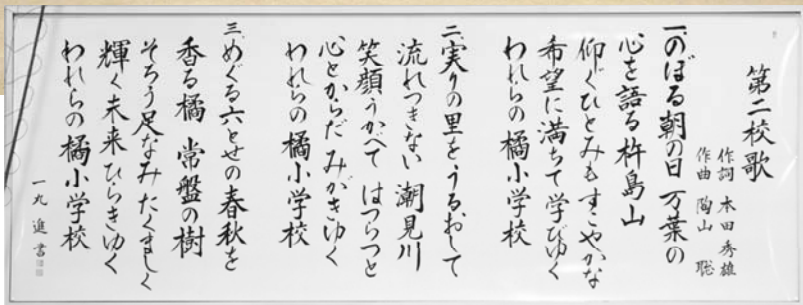 第二校歌
作詞 本田秀雄
作曲 陶山 聡
一、のぼる朝の日 万葉の
心を語る杵島山
仰ぐひとみもすこやかな
希望に満ちて学びゆく
われらの橘小学校
二、実りの里をうるおして
流れつきない 潮見川
笑顔うかべて はつらつと
心とからだ みがきゆく
われらの橘小学校
三、めぐる六とせの春秋を
香る橘 常盤の樹
そろう足なみ たくましく
輝く未来 ひらきゆく
われらの橘小学校
一丸 進 書